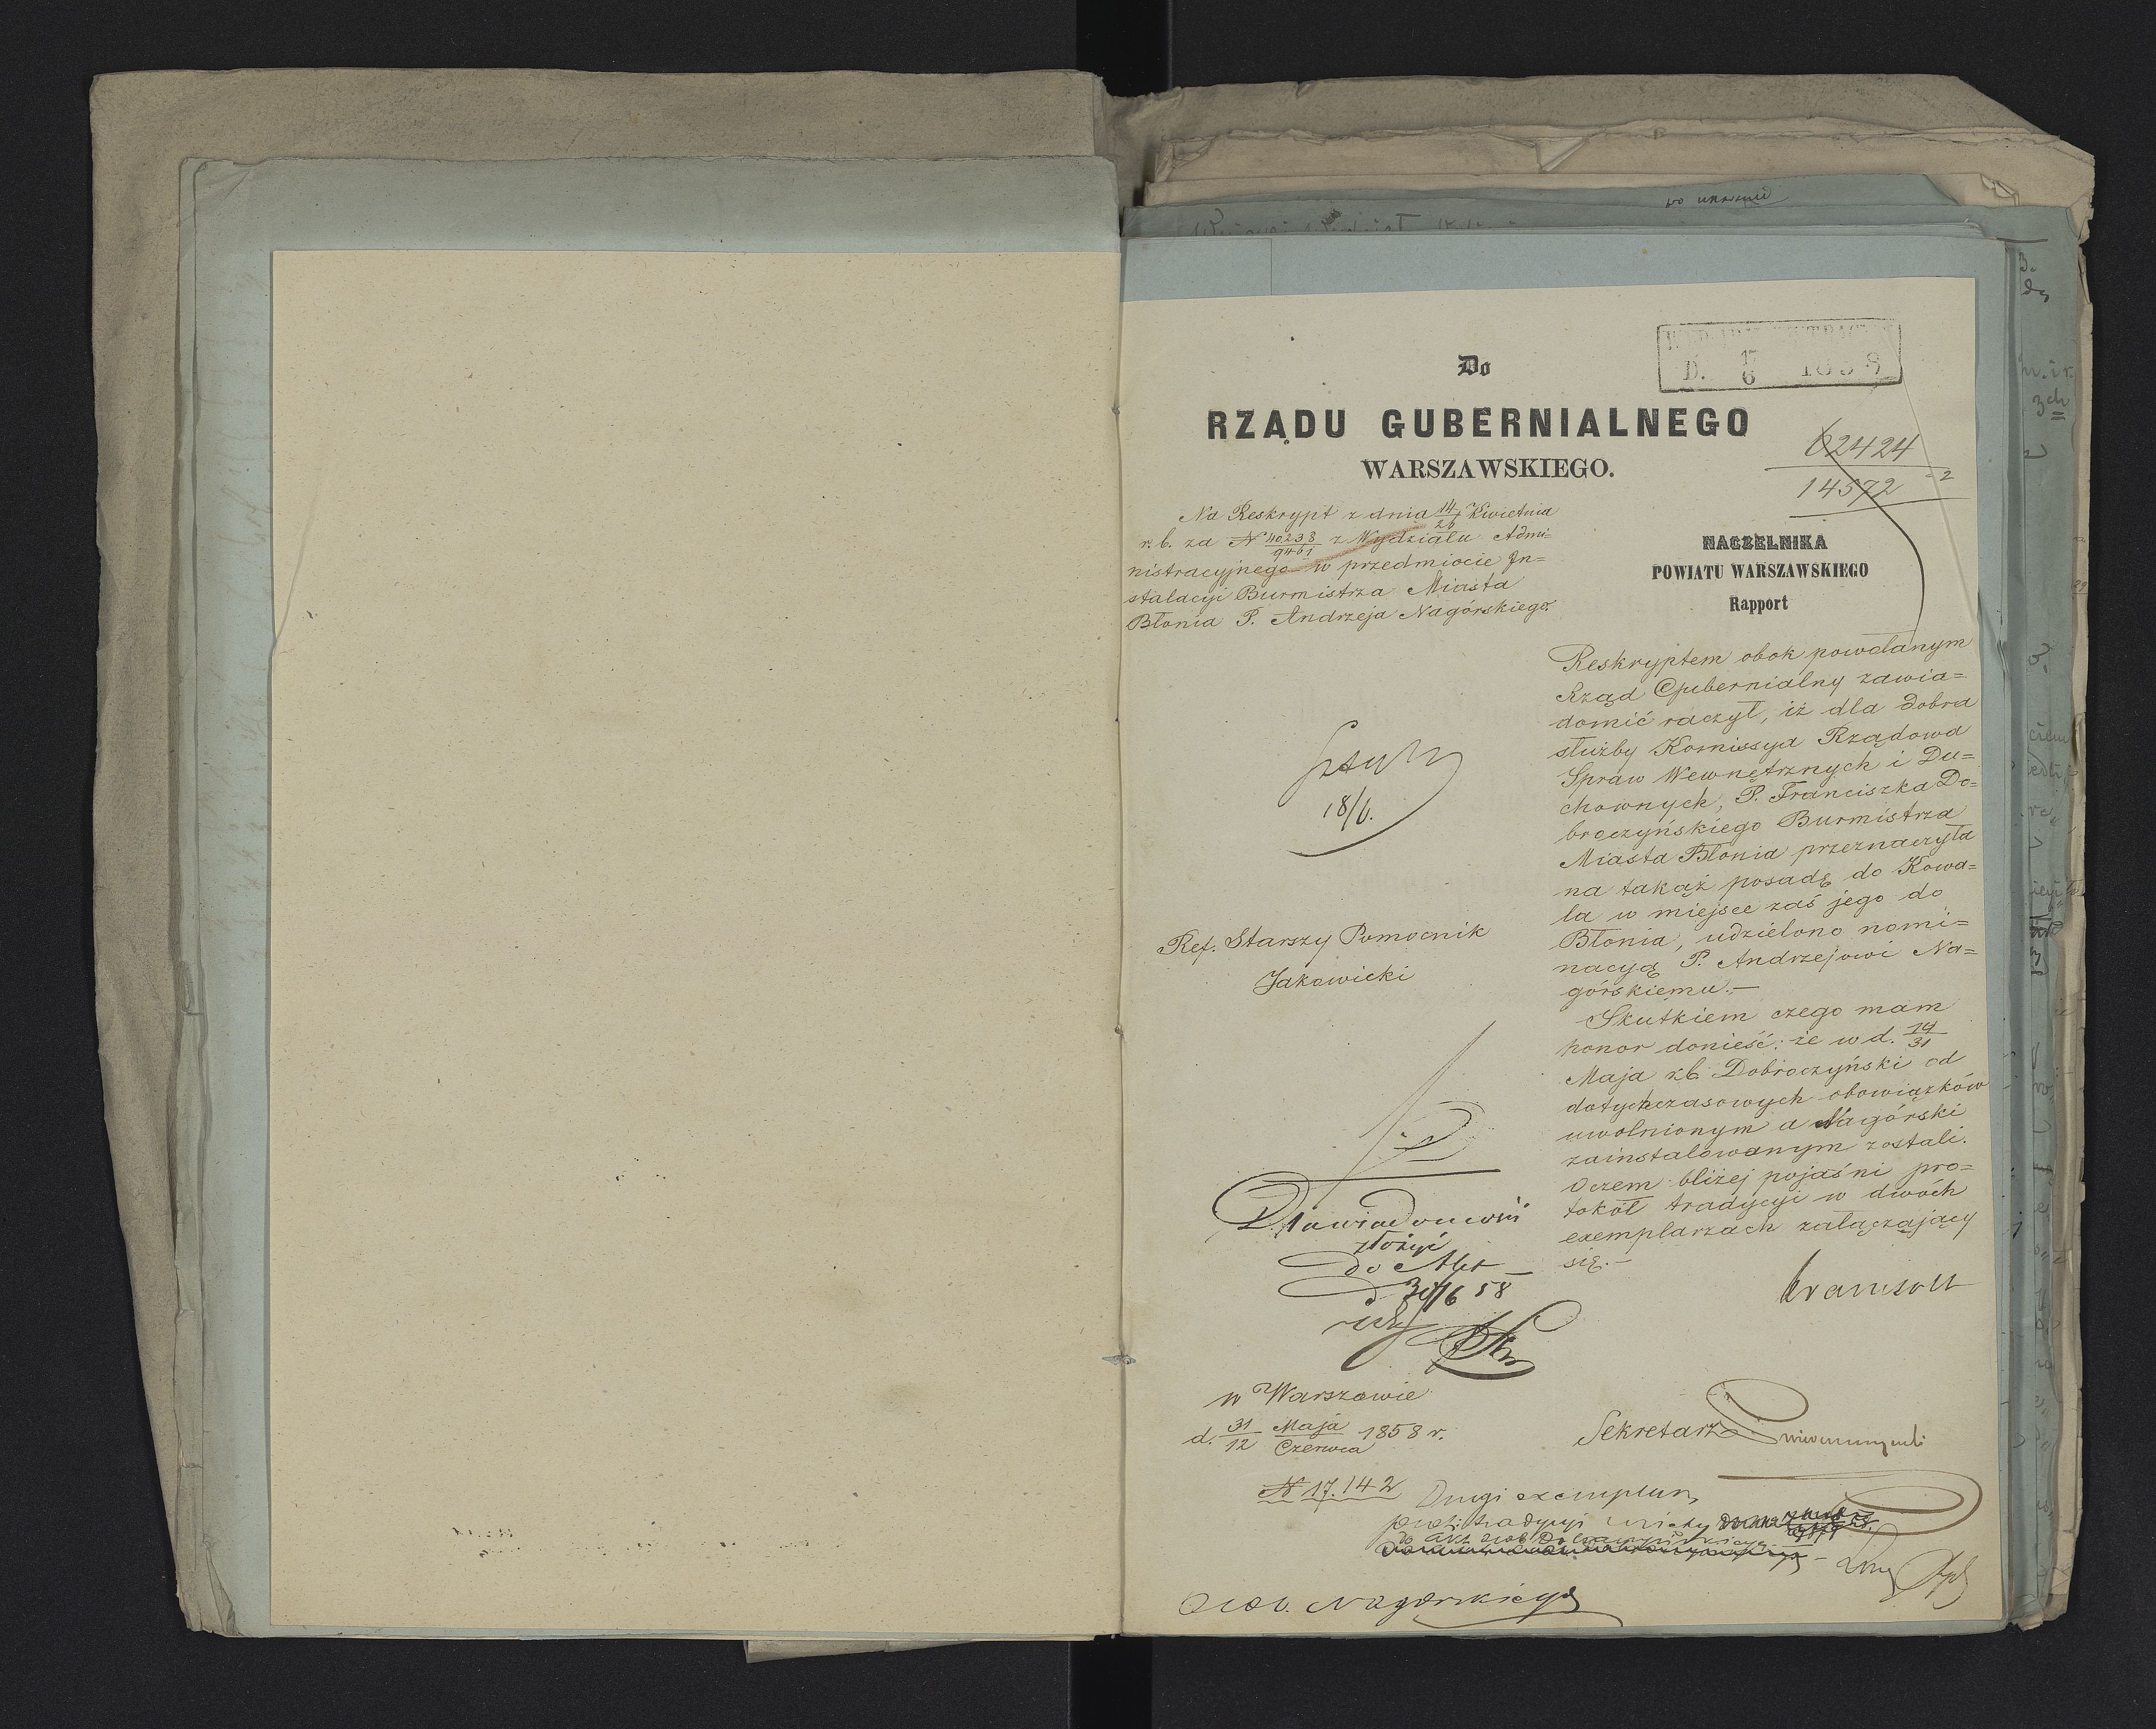 Do
RZĄDU GUBERNIALNEGO
WARSZAWSKIEGO.
D. 17/6 1858
62424
14572 -2
Na Reskrypt z dnia 14/26 Kwietnia
r. b. za N 40238/9461 z Wydziału Admi=
nistracyjnego w przedmiocie In=
stalacyi Burmistrza Miasta
Błonia P. Andrzeja Nagórskiego.
NACZELNIKA
POWIATU WARSZAWSKIEGO
Rapport
Reskryptem obok powołanym
Rząd Gubernialny zawia=
domić raczył, iż dla dobra
służby Komissya Rządowa
Spraw Wewnętrznych i Du=
chownych, P. Franciszka Do=
broczyńskiego Burmistrza
Miasta Błonia przeznaczyła
na takąż posadę do Kowa=
la w miejsce zaś jego do
Błonia, udzielono nomi=
nacyą P. Andrzejowi Na=
górskiemu.—
Skutkiem czego mam
honor donieść: że w d. 19/31
Maja r.b. Dobroczyński od
dotychczasowych obowiązków
uwolnionym a Nagórski
zainstalowanym zostali.
O czem bliżej pojaśni pro=
tokół tradycyi w dwóch
exemplarzach załączający
się.—
18/6.
Ref. Starszy Pomocnik
Jakowicki
złożyć
do Akt
58
w Warszawie
d. 31/12 Maja/Czerwca 1858 r.
N 17.142
Sekretarz
Drugi exemplarz
prot: tradycyi
do akt osob Dobroczyńskiego
Osob. Nagórskiego